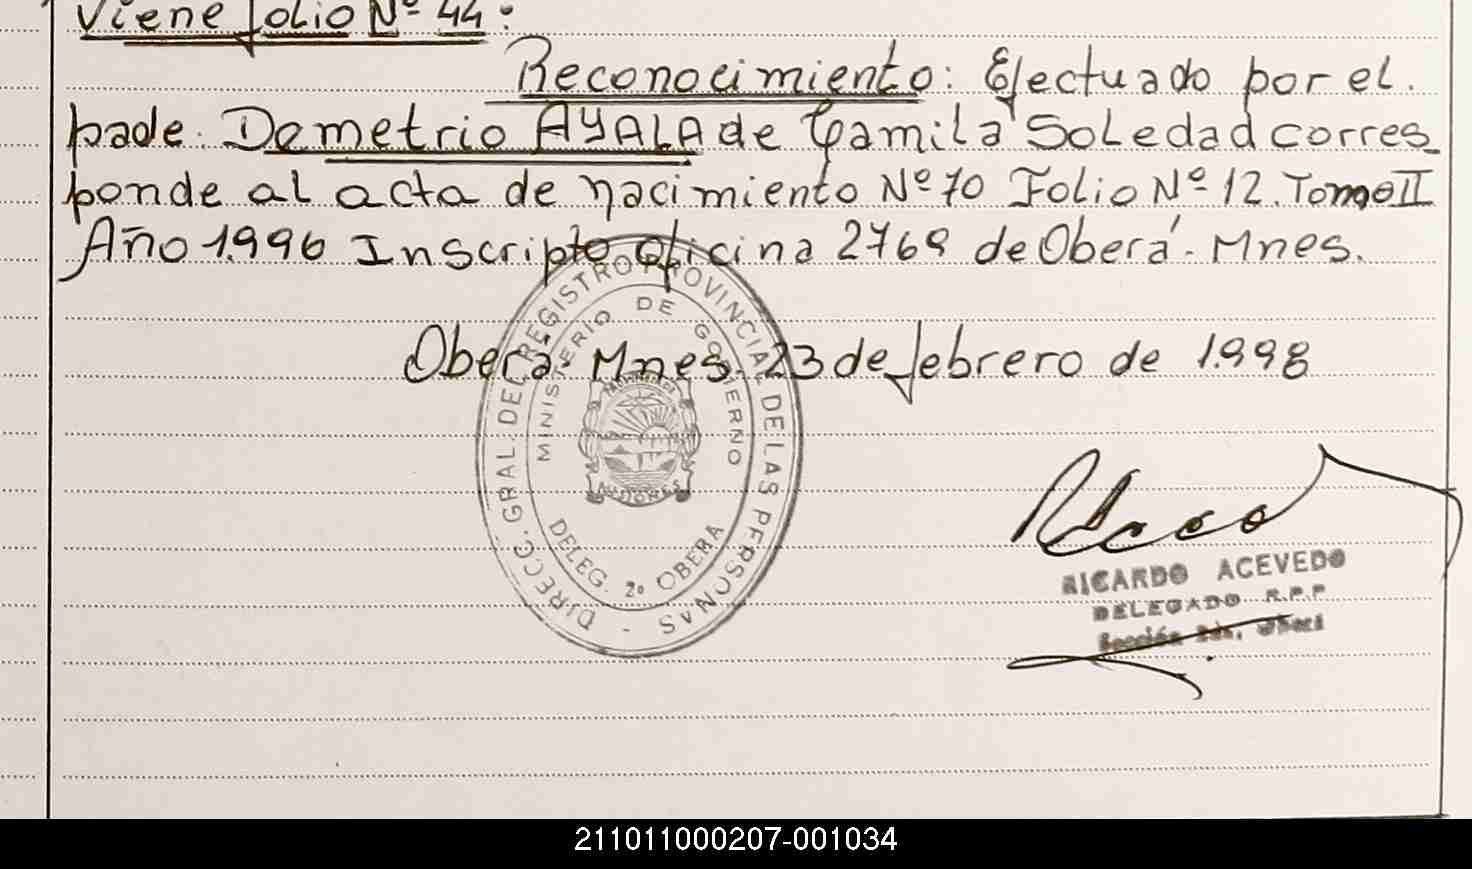 Viene folio Nº 44:
Reconocimiento: Efectuado por el.
pade. Demetrio AYALA de Camila Soledad corres_
ponde al acta de nacimiento Nº 70 Folio Nº 12. Tomo II
Año 1.996 Inscripto oficina 2769 de Oberá - Mnes.
Oberá - Mnes. 23 de febrero de 1.998
DIRECC. GRAL. DEL REGISTRO PROVINCIAL DE LAS PERSONAS -
MINISTERIO DE GOBIERNO
MISIONES
DELEG. 2º OBERA
RICARDO ACEVEDO
DELEGADO R.P.P
Sección 2da. Oberá
211011000207-001034